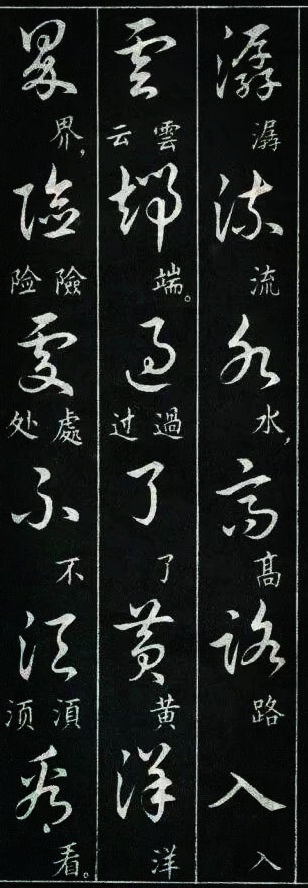 潺流水高路入
潺流水，髙路入
雲端過了黄洋
雲云端。過过了黄洋
界險處不須看
界，險险處处不須须看。